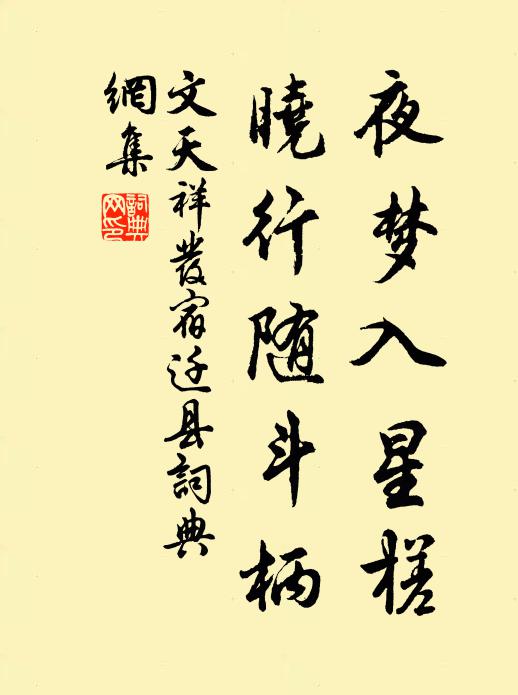 夜梦入星槎
曉行随斗柄
文天祥發宿迁县詞典
網集
詞典网印